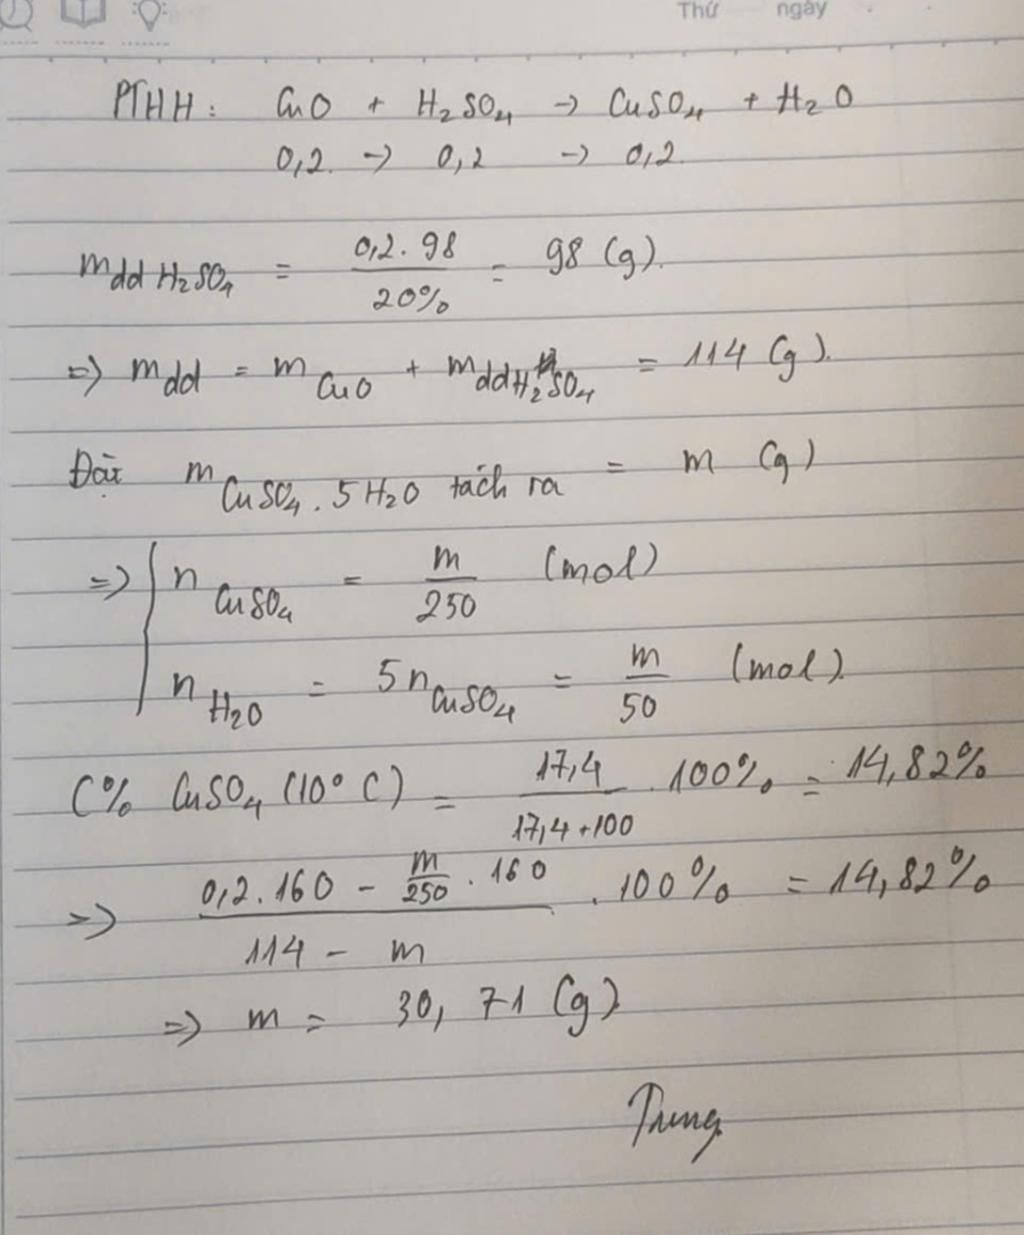 Thứ ngày
PTHH: CuO + H₂SO₄ → CuSO₄ + H₂O
0,2 → 0,2 → 0,2.
m dd H₂SO₄ = 0,2.98 / 20% = 98 (g).
=> m dd = m CuO + m dd H₂SO₄ = 114 (g).
Đặt m CuSO₄.5H₂O tách ra = m (g)
=> { n CuSO₄ = m/250 (mol)
n H₂O = 5n CuSO₄ = m/50 (mol).
C% CuSO₄ (10°C) = 17,4 / 17,4+100 . 100% = 14,82%
=> 0,2.160 - m/250 . 160 / 114 - m . 100% = 14,82%
=> m = 30,71 (g)
Trung